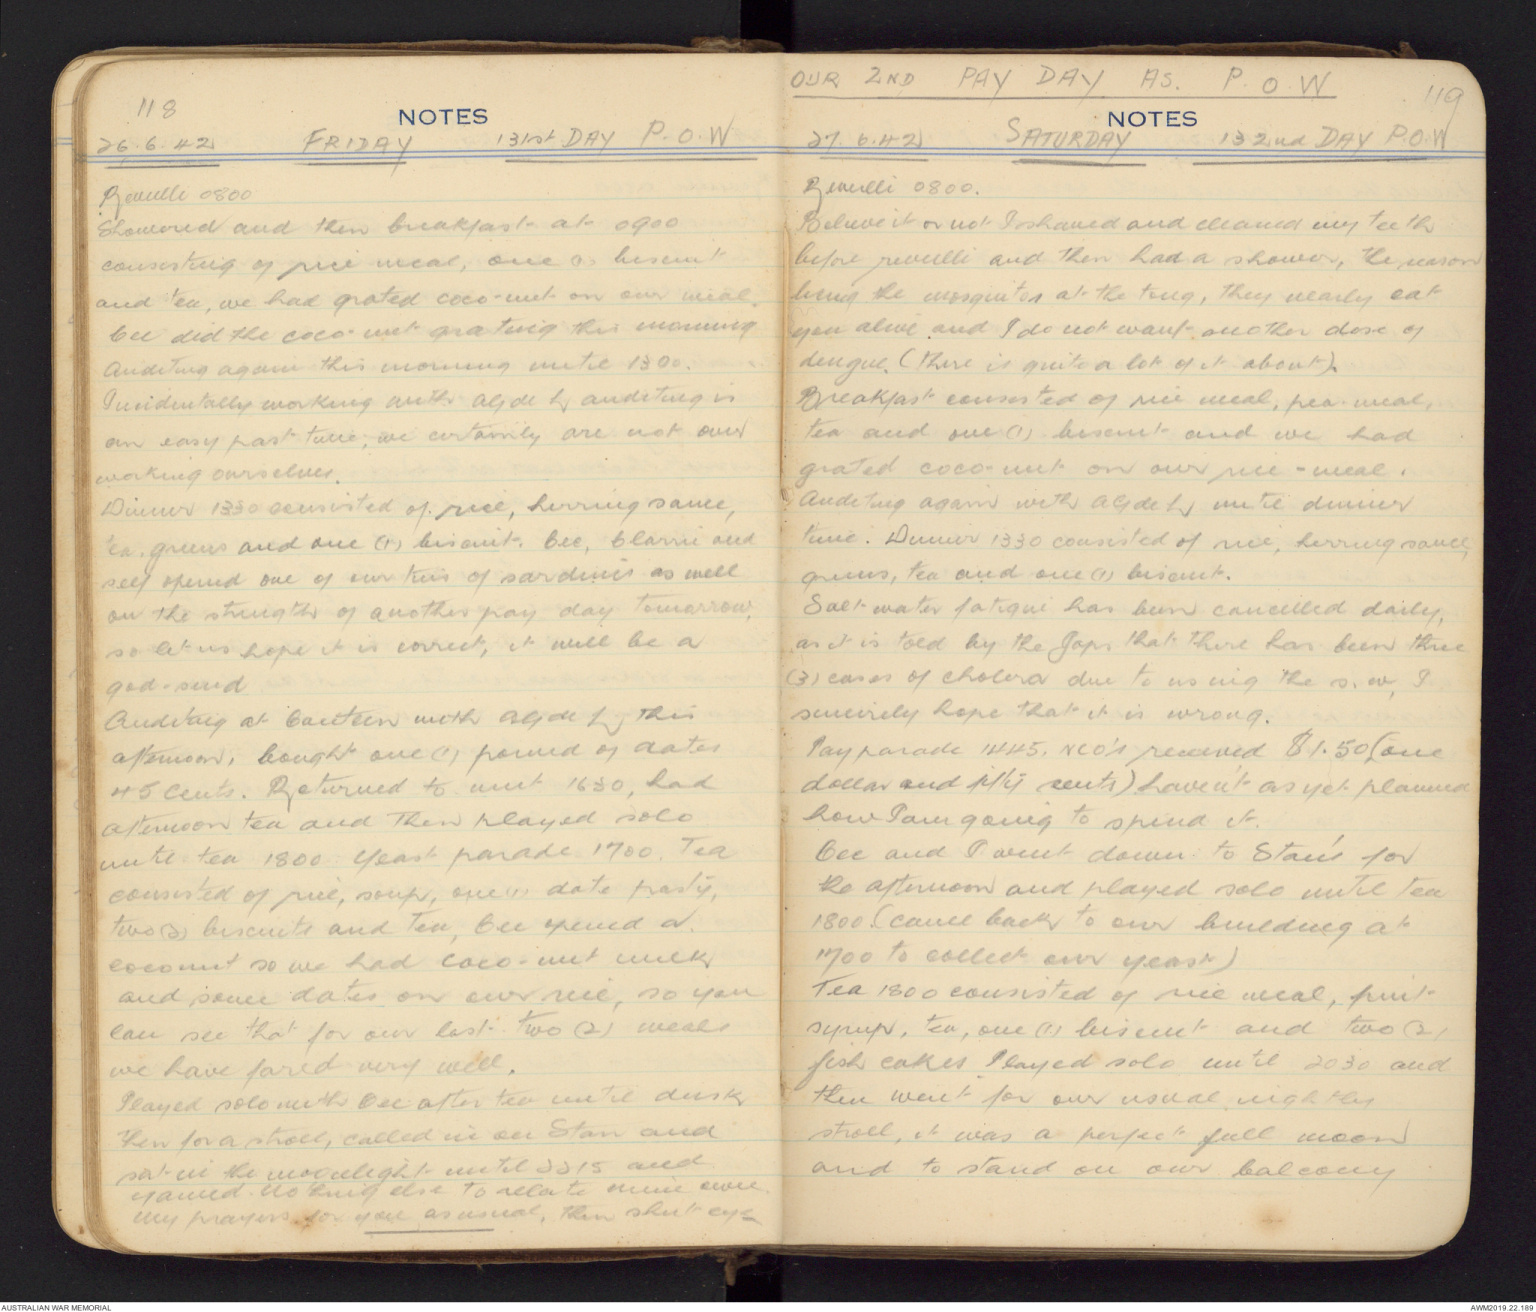 118
NOTES
26.6.42 FRIDAY 131st DAY P.O.W
Reveilli 0800
Showered and then breakfast at 0900
consisting of rice meal, one (1) biscuit
and tea, we had grated coco-nut on our meal.
Cec did the coco-nut grating this morning
Auditing again this morning until 1300.
Incidentally working with auditing is
an easy past time, we certainly are not over
working ourselves.
Dinner 1330 consisted of rice, herring sauce,
tea, greens and one (1) biscuit. Cec, Clarrie and
self opened one of our tins of sardines as well
on the strength of another pay day tomorrow,
so let us hope it is correct, it will be a
god-send
Auditing at Canteen with this
afternoon, bought one (1) pound of dates
45 cents. Returned to unit 1630, had
afternoon tea and then played solo
until tea 1800 Yeast parade 1700. Tea
consisted of rice, soup, one (1) date pasty,
two (2) biscuits and tea, Cec opened a
coconut so we had coco-nut milk
and some dates on our rice, so you
can see that for our last two (2) meals
we have fared very well.
Played solo with Cec after tea until dusk
then for a stroll, called in on Stan and
sat in the moonlight until 2215 and
yarned. Nothing else to relate mine own
my prayers for you as usual, then shut eye
OUR 2ND PAY DAY AS. P.O.W
119
NOTES
27.6.42 SATURDAY 132nd DAY P.O.W
Reveilli 0800.
Believe it or not I shaved and cleaned my teeth
before reveilli and then had a shower, the reason
being the mosquitos at the tong, they nearly eat
you alive and I do not want another dose of
dengue. (There is quite a lot of it about).
Breakfast consisted of rice meal, pea-meal,
tea and one (1) biscuit and we had
grated coco-nut on our rice-meal.
Auditing again with until dinner
time. Dinner 1330 consisted of rice, herring sauce,
greens, tea and one (1) biscuit.
Salt water fatigue has been cancelled daily,
as it is told by the Japs that there has been three
(3) cases of cholera due to using the s.w, I
sincerely hope that it is wrong.
Pay parade 1445. NCO's received $1.50 (one
dollar and fifty cents) haven't as yet planned
how I am going to spend it.
Cec and I went down to Stan's for
the afternoon and played solo until tea
1800. (came back to our building at
1700 to collect our yeast)
Tea 1800 consisted of rice meal, fruit
syrup, tea, one (1) biscuit and two (2)
fish cakes. Played solo until 2030 and
then went for our usual nightly
stroll, it was a perfect full moon
and to stand on our balcony
AUSTRALIAN WAR MEMORIAL
AWM2019.22.189